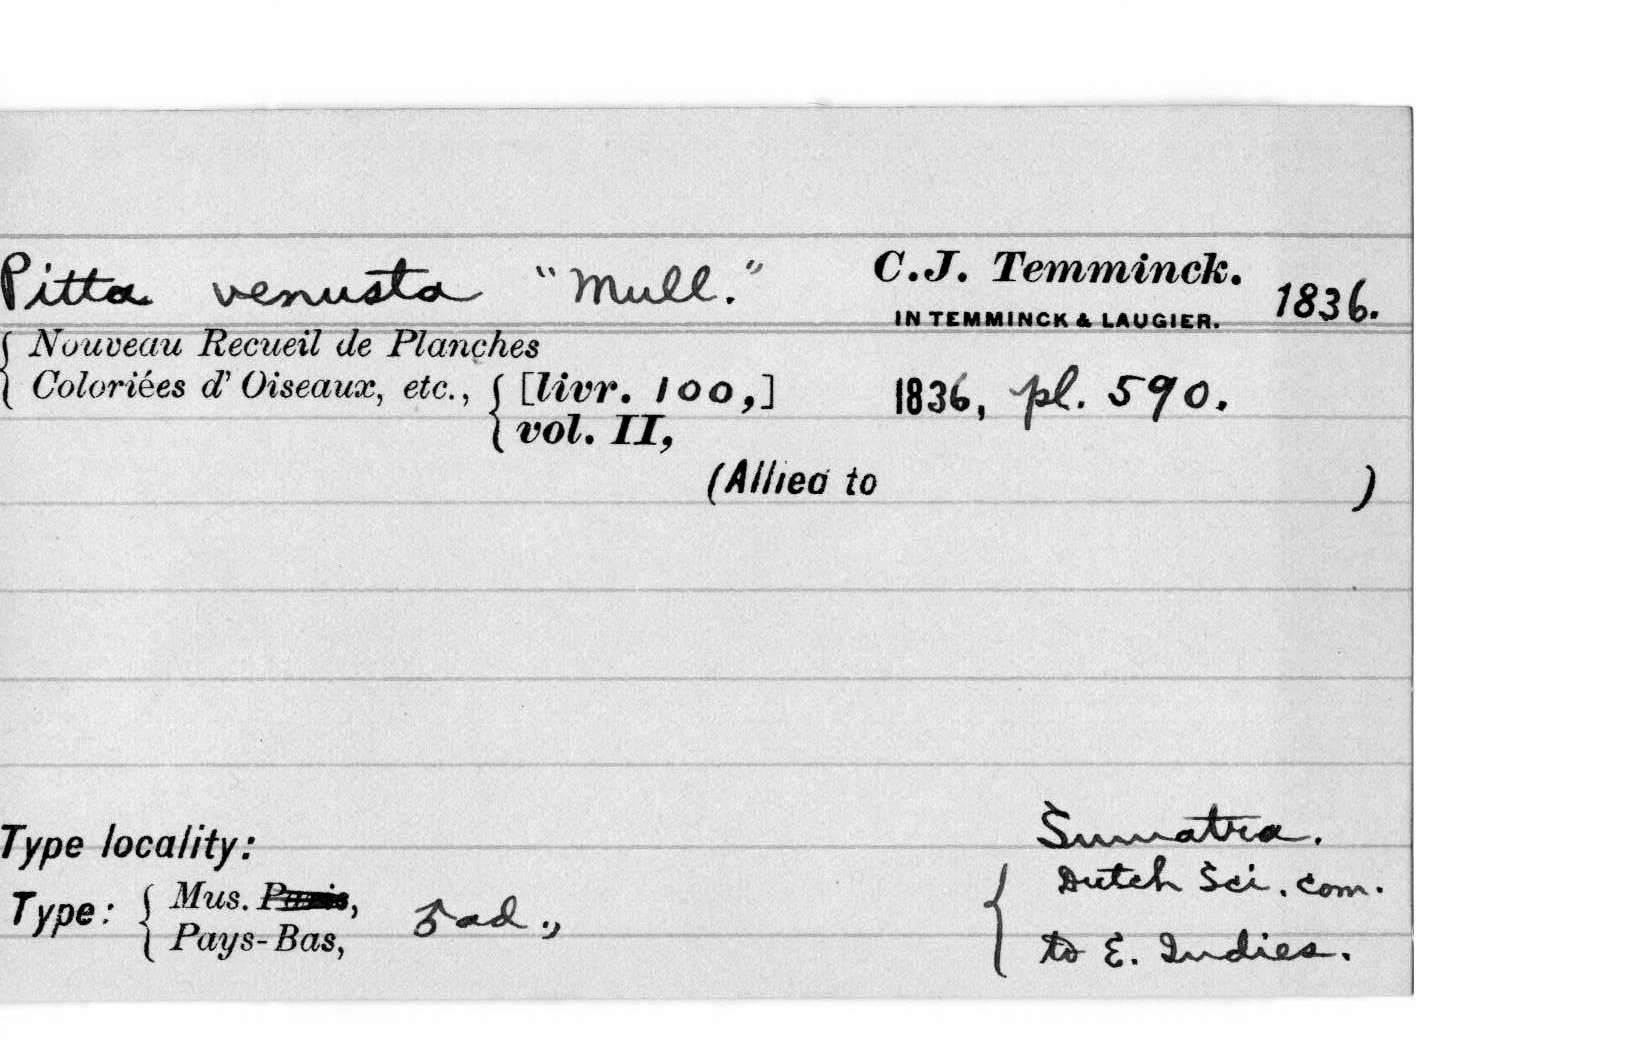 Pitta venusta "Mull." C.J. Temminck. 1836.
IN TEMMINCK & LAUGIER.
Nouveau Recueil de Planches
Coloriées d'Oiseaux, etc., [livr. 100,] 1836, pl. 590.
vol. II,
(Allied to )
Type locality: Sumatra.
Type: Mus. Paris, ad., Dutch Sci. Com.
Pays-Bas, to E. Indies.